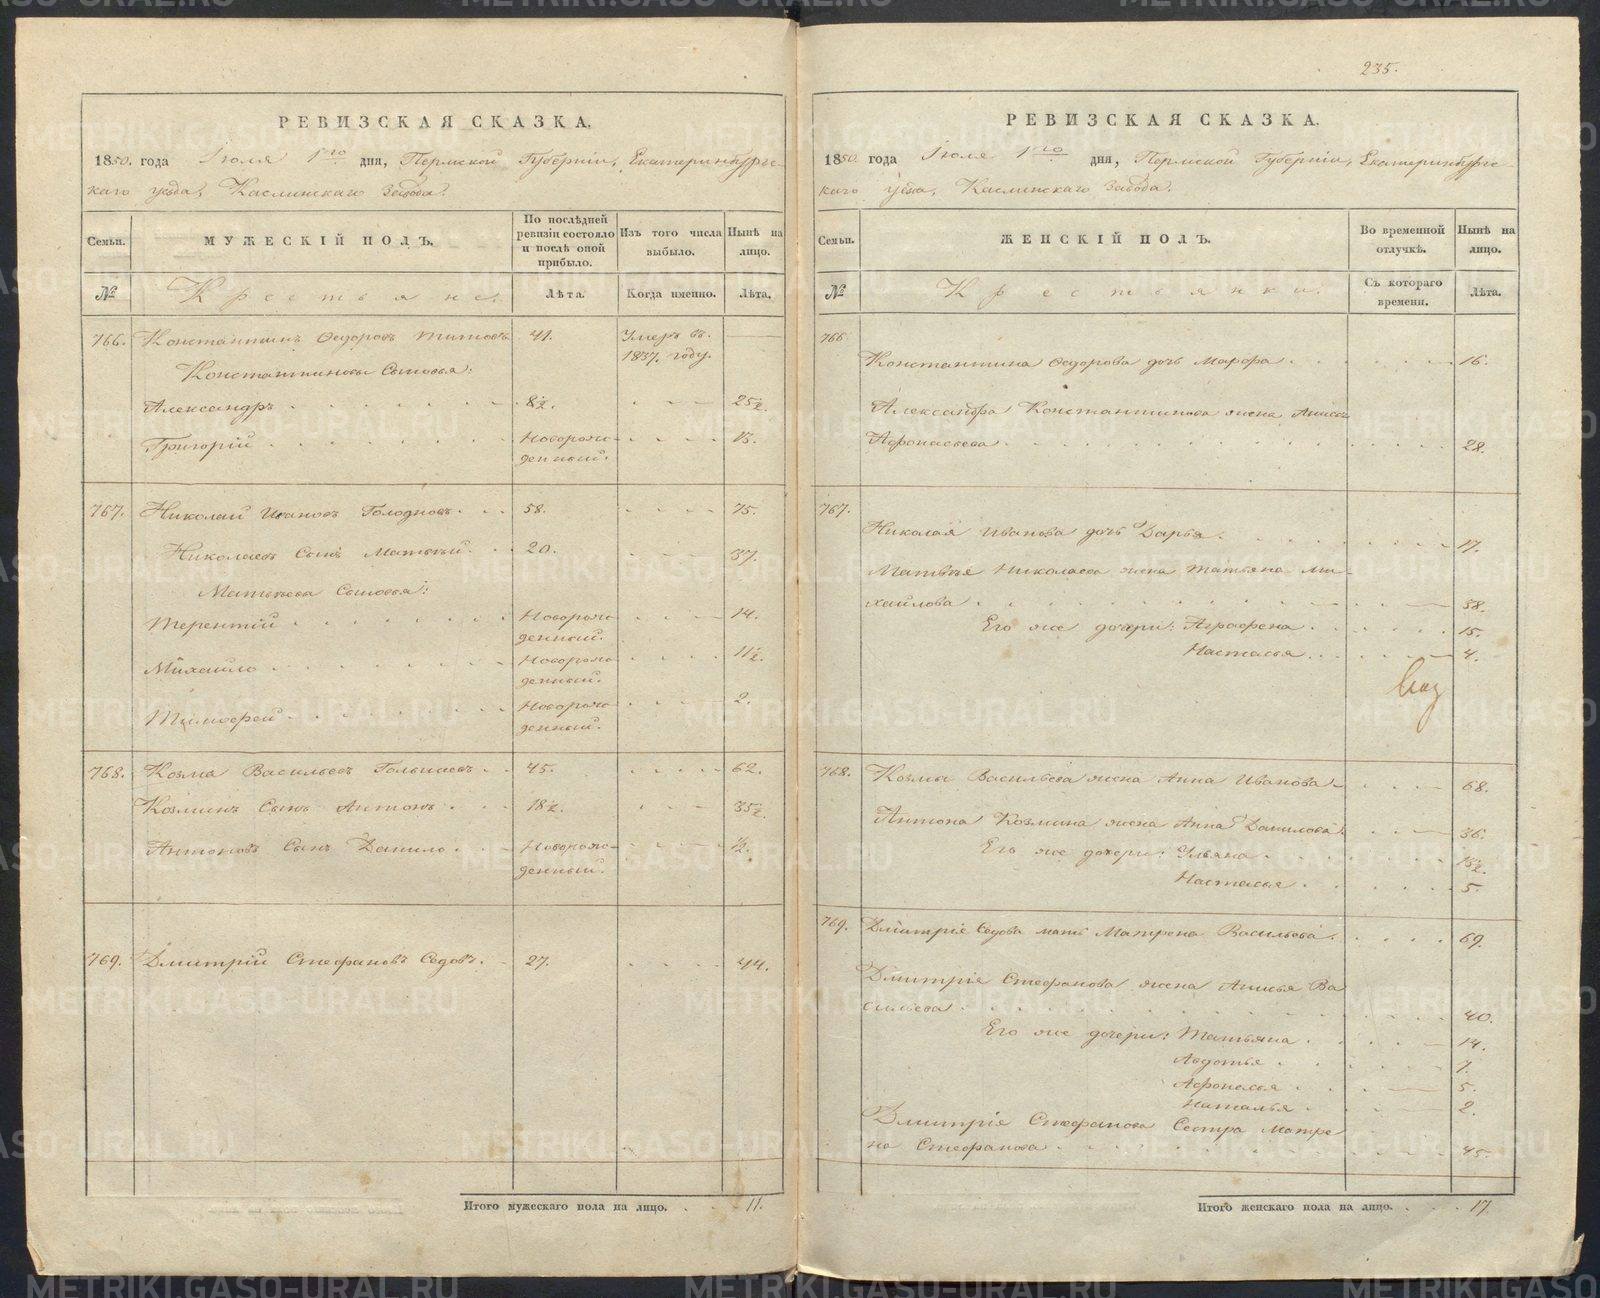 РЕВИЗСКАЯ СКАЗКА.
1850. года Іюля 1го дня, Пермской Губерніи, Екатеринбургс-
каго уѣзда, Каслинскаго Завода.
Семьи.
МУЖЕСКІЙ ПОЛЪ.
По послѣдней
ревизіи состояло
и послѣ оной
прибыло.
Изъ того числа
выбыло.
Нынѣ на
лицо.
№
Крестьяне.
Лѣта.
Когда именно.
Лѣта.
766. Константинъ Ѳедоровъ Титовъ 41. Умеръ въ
1837. году.
Константиновы Сыновья:
Александръ 8½. 25½.
Григорій Новорож- 13.
денный.
767. Николай Ивановъ Голодновъ. 58. 75.
Николаевъ Сынъ Матвѣй. 20. 37.
Матвѣева Сыновья:
Терентій Новорож- 14.
денный.
Михайло Новорож- 11½.
денный.
Тимофей Новорож- 2.
денный.
768. Козма Васильевъ 45. 62.
Козминъ Сынъ Антонъ 18½. 35½.
Антоновъ Сынъ Данило Новорож- ½.
денный.
769. Дмитрій Стефановъ Седовъ. 27. 44.
Итого мужескаго пола на лицо. 11.
235.
РЕВИЗСКАЯ СКАЗКА.
1850. года Іюля 1го дня, Пермской Губерніи, Екатеринбургс-
каго уѣзда, Каслинскаго Завода.
Семьи.
ЖЕНСКІЙ ПОЛЪ.
Во временной
отлучкѣ.
Нынѣ на
лицо.
№
Крестьянки.
Съ котораго
времени.
Лѣта.
766.
Константина Ѳедорова дочь Марфа 16.
Александра Константинова жена Анисья
Афонасьева 28.
767.
Николая Иванова дочь Дарья. 17.
Матвѣя Николаева жена Татьяна Ми-
хайлова 38.
Его же дочери: Аграфена 15.
Настасья 4.
768. Козмы Васильева жена Анна Иванова 68.
Антона Козмина жена Анна Данилова 36.
Его же дочери: Ульяна 15½.
Настасья 5.
769. Дмитрія Седова мать Матрена Васильева. 69.
Дмитрія Стефанова жена Анисья Ва
сильева 40.
Его же дочери: Татьяна 14.
Авдотья 7.
Афонасья 5.
Наталья 2.
Дмитрія Стефанова Сестра Матре
на Стефанова 45.
Итого женскаго пола на лицо. 17.
METRIKI.GASO-URAL.RU